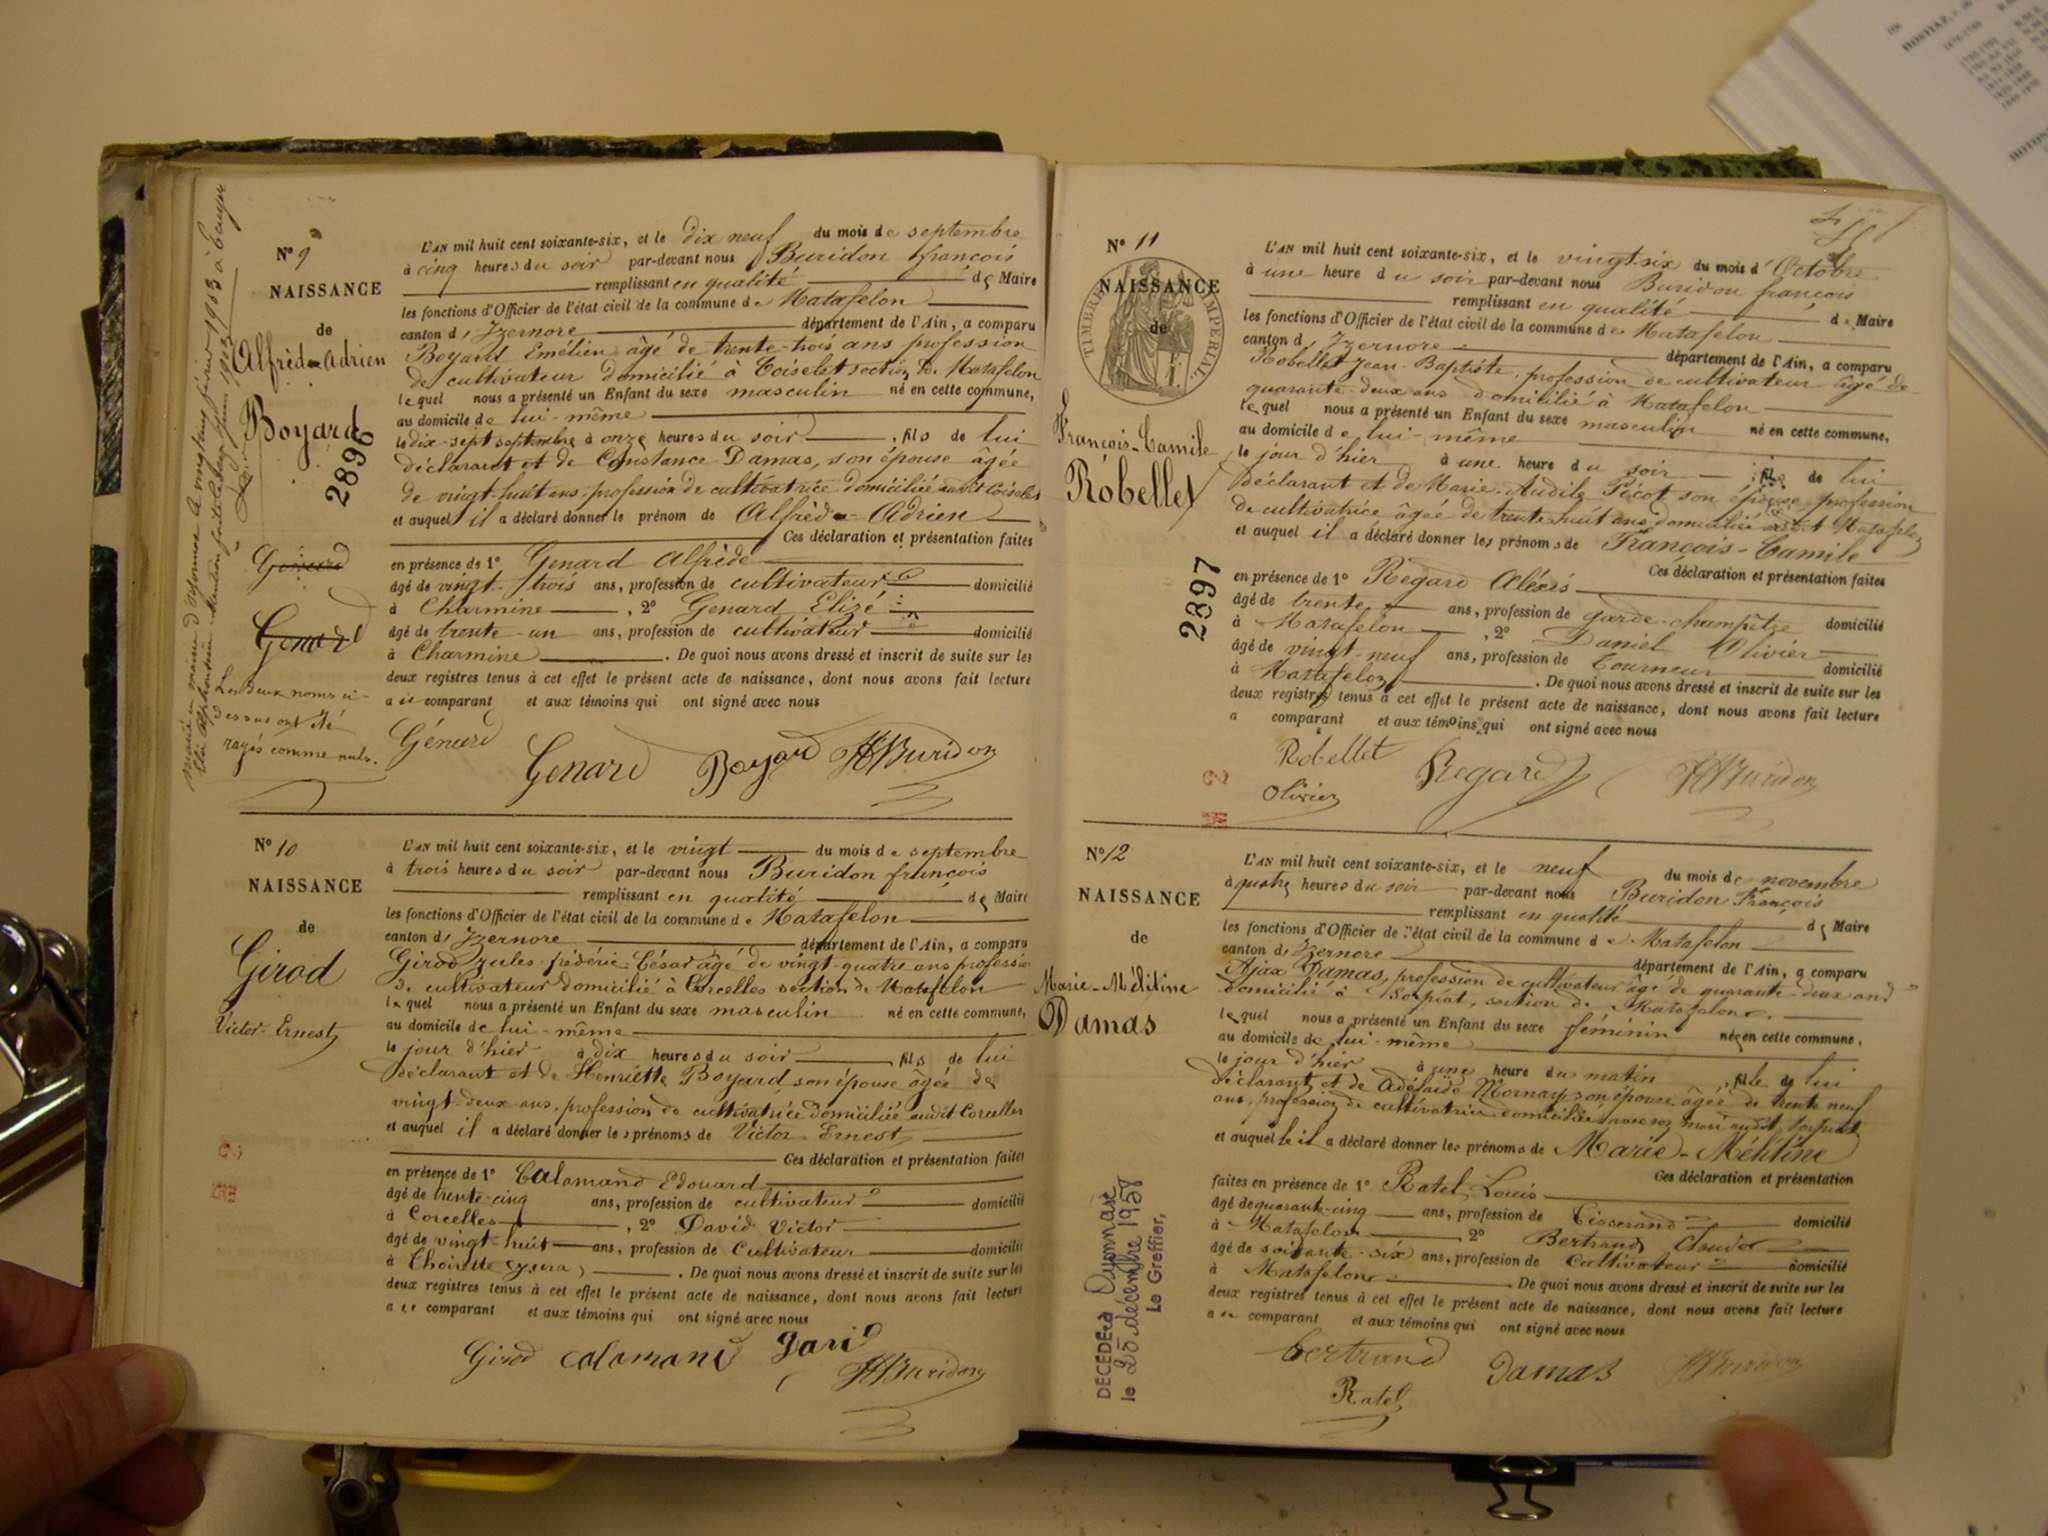 N° 9
NAISSANCE
de
Alfrèd-Adrien
Boyard
2896
Genard
Genard
Les deux noms ci-
dessus ont été
rayés comme nuls.
L'AN mil huit cent soixante-six, et le dix neuf du mois de septembre
à cinq heures du soir par-devant nous Buridon françois
remplissant en qualité de Maire
les fonctions d'Officier de l'état civil de la commune de Matafelon
canton d'Izernore département de l'Ain, a comparu
Boyard Emélien âgé de trente-trois ans profession
de cultivateur domicilié à Coiselet section de Matafelon
lequel nous a présenté un Enfant du sexe masculin né en cette commune,
au domicile de lui-même
le dix-sept septembre à onze heures du soir, fils de lui
déclarant et de Constance Damas, son épouse âgée
de vingt-huit ans, profession de cultivatrice domiciliée audit Coiselet
et auquel il a déclaré donner le prénom de Alfrèd-Adrien
Ces déclaration et présentation faites
en présence de 1° Genard Alfrède
âgé de vingt-trois ans, profession de cultivateur domicilié
à Charmine, 2° Genard Elizé
âgé de trente-un ans, profession de cultivateur domicilié
à Charmine. De quoi nous avons dressé et inscrit de suite sur les
deux registres tenus à cet effet le présent acte de naissance, dont nous avons fait lecture
au comparant et aux témoins qui ont signé avec nous
Génard Genard Boyard Buridon
N° 10
NAISSANCE
de
Girod
Victor-Ernest
L'AN mil huit cent soixante-six, et le vingt du mois de septembre
à trois heures du soir par-devant nous Buridon françois
remplissant en qualité de Maire
les fonctions d'Officier de l'état civil de la commune de Matafelon
canton d'Izernore département de l'Ain, a comparu
Girod Jules-fréderic-César âgé de vingt-quatre ans profession
de cultivateur domicilié à Corcelles section de Matafelon
lequel nous a présenté un Enfant du sexe masculin né en cette commune,
au domicile de lui-même
le jour d'hier à dix heures du soir, fils de lui
déclarant et de Henriette Boyard son épouse âgée de
vingt-deux ans, profession de cultivatrice domiciliée audit Corcelles
et auquel il a déclaré donner les prénoms de Victor-Ernest
Ces déclaration et présentation faites
en présence de 1° Calamand Edouard
âgé de trente-cinq ans, profession de cultivateur domicilié
à Corcelles, 2° David Victor
âgé de vingt-huit ans, profession de Cultivateur domicilié
à Thoirette (Jura). De quoi nous avons dressé et inscrit de suite sur les
deux registres tenus à cet effet le présent acte de naissance, dont nous avons fait lecture
au comparant et aux témoins qui ont signé avec nous
Girod Calamand David
Buridon
N° 11
NAISSANCE
de
TIMBRE IMPERIAL
François-Camile
Robellet
2897
L'AN mil huit cent soixante-six, et le vingt-six du mois d'Octobre
à une heure du soir par-devant nous Buridon françois
remplissant en qualité de Maire
les fonctions d'Officier de l'état civil de la commune de Matafelon
canton d'Izernore département de l'Ain, a comparu
Robellet Jean-Baptiste, profession de cultivateur âgé de
quarante-deux ans domicilié à Matafelon
lequel nous a présenté un Enfant du sexe masculin né en cette commune,
au domicile de lui-même
le jour d'hier à une heure du soir, fils de lui
déclarant et de Marie-Audile Picot son épouse profession
de cultivatrice âgée de trente-huit ans domiciliée audit Matafelon
et auquel il a déclaré donner les prénoms de François-Camile
Ces déclaration et présentation faites
en présence de 1° Regard Alexis
âgé de trente ans, profession de garde-champêtre domicilié
à Matafelon, 2° Daniel Olivier
âgé de vingt-neuf ans, profession de Tourneur domicilié
à Matafelon. De quoi nous avons dressé et inscrit de suite sur les
deux registres tenus à cet effet le présent acte de naissance, dont nous avons fait lecture
a comparant et aux témoins qui ont signé avec nous
Robellet Regard Buridon
Olivier
N° 12
NAISSANCE
de
Marie-Mélitine
Damas
DÉCÉDÉ à Oyonnax
le 25 décembre 1957
Le Greffier,
L'AN mil huit cent soixante-six, et le neuf du mois de novembre
à quatre heures du soir par-devant nous Buridon François
remplissant en qualité de Maire
les fonctions d'Officier de l'état civil de la commune de Matafelon
canton d'Izernore département de l'Ain, a comparu
Ajax Damas, profession de cultivateur âgé de quarante-deux ans
domicilié à Sorpiat, section de Matafelon
lequel nous a présenté un Enfant du sexe féminin née en cette commune,
au domicile de lui-même
le jour d'hier à une heure du matin, fille de lui
déclarant et de Adélaïde Mornay son épouse âgée de trente neuf
ans, profession de cultivatrice domiciliée avec son mari audit Sorpiat
et auquelle il a déclaré donner les prénoms de Marie-Mélitine
Ces déclaration et présentation
faites en présence de 1° Ratel Louis
âgé de quarante-cinq ans, profession de Tisserand domicilié
à Matafelon, 2° Bertrand Claude
âgé de soixante-six ans, profession de Cultivateur domicilié
à Matafelon. De quoi nous avons dressé et inscrit de suite sur les
deux registres tenus à cet effet le présent acte de naissance, dont nous avons fait lecture
au comparant et aux témoins qui ont signé avec nous
Bertrand Damas Buridon
Ratel